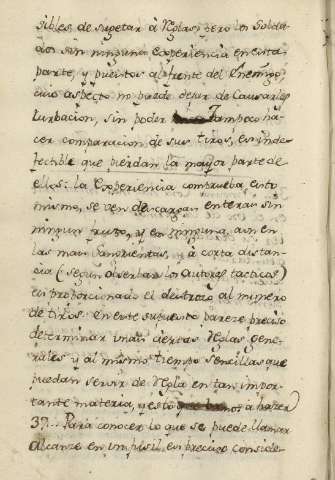 sibles de sugetar á Reglas, pero los Solda-
dos sin ninguna Experiencia en esta
parte, y puestos al frente del Enemigo,
cuio aspecto no puede dejar de Causarles
turbacion, sin poder tampoco ha-
cer comparacion de sus tiros, es inde-
fectible que pierdan la mayor parte de
ellos: la Experiencia comprueba esto
mismo, se ven descargas enteras sin
ningun fruto, y en ninguna, aun en
las mas Sangrientas, á corta distan-
cia (segun observan los Autores tacticos)
es proporcionado el destrozo al numero
de tiros. En este supuesto pareze preciso
determinar unas ciertas Reglas gene-
rales y al mismo tiempo sencillas que
puedan servir de Regla en tan impor-
tante materia, y esto á hazer
37... Para conocer lo que se puede llamar
alcanze en un fusil es preciso conside-